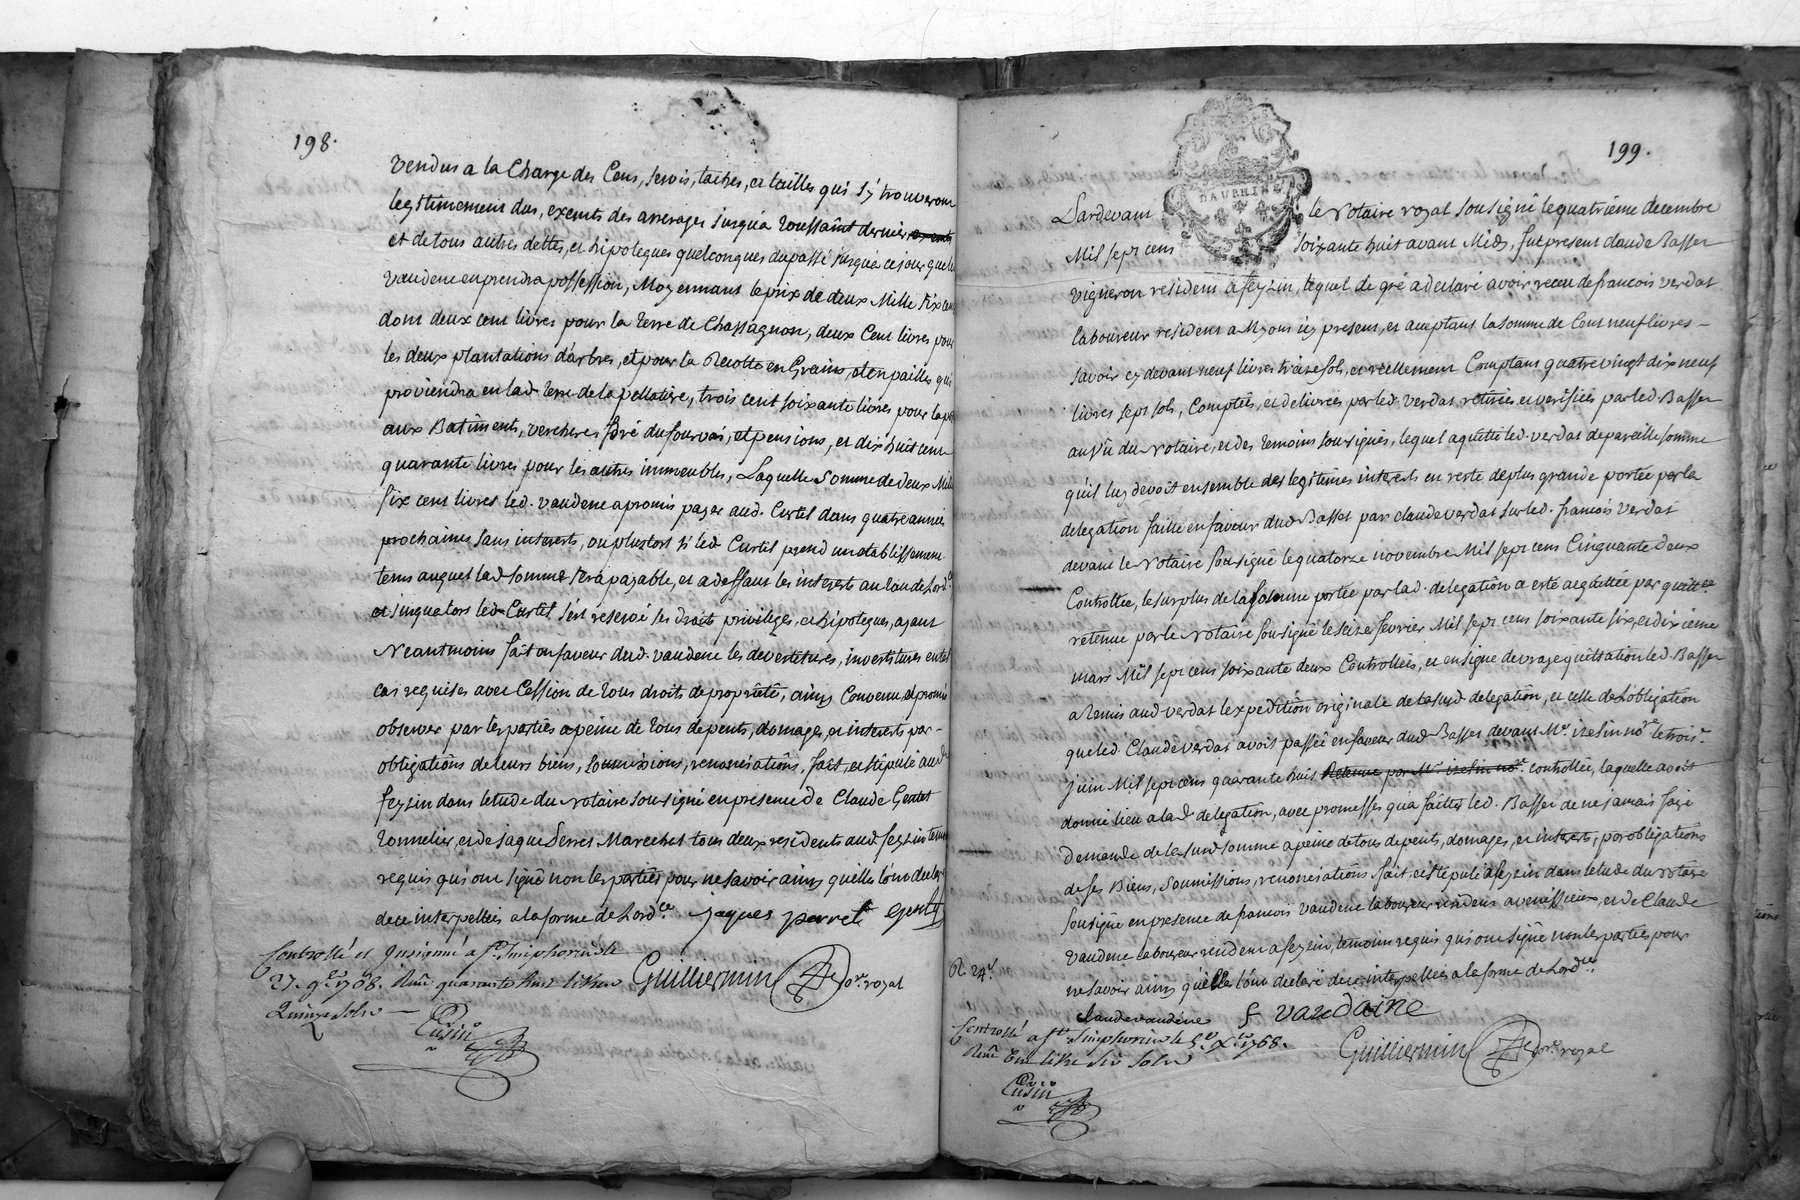 198.
vendus a la Charge des Cens, servis, taches, et tailles qui s'y trouveront
legitimement dus, exemts des arrerages jusqu'a toussaint dernier
et de tous autres dettes, et hipoteques quelconques du passé jusqua ce jour que led
vaudene en prendra possession, Moyennant le prix de deux Mille six cent
dont deux cent livres pour la terre de Chassagnon, deux Cent livres pour
les deux plantations d'arbres, et pour la Recolte en Grains, et en pailles qui
proviendra en lad. terre de la pellatiere, trois cent soixante livres pour la
aux Batiments, vercheres pré du fourvas, et pensions, et dix huit cent
quarante livres pour les autres immeubles, Laquelle somme de deux Mille
six cent livres led. vaudene a promis payer aud. Curtil dans quatre années
prochaines sans interets, ou plustost si led Curtil prend un etablissement
tems auquel lad somme sera payable, et a deffaut les interets au taux de Lord.ce
et jusqu'alors led Curtil s'est reservé ses droits privileges, et hipoteques, ayant
Neantmoins fait en faveur dud. vaudene les devestitures, investitures en tel
cas requises avec Cession de tous droits de proprieté, ainsy Convenu, et promis
observer par les parties a peine de tous depents, domages, et interets par
obligations de leurs biens, soumissions, renonciations, fait, et stipulé aud.
feyzin dans letude du notaire sousigné en presence de Claude Gentet
tonnelier, et de jaque Perret Marechal tous deux residents aud feyzin temoins
requis qui ont signé non les parties pour ne savoir ainsy quelles l'ont declaré
de ce interpellées a la forme de Lord.ce jaques perret Genty
Controllé et insinué a St. Simphorien le
27. 9.bre 1768. Recu quarante huit livres Guilliermin No.re royal
Quinze sols
Cusin
199.
DAUPHINÉ
Pardevant le notaire royal sousigné le quatrieme decembre
Mil sept cens soixante huit avant Midy, fut present claude Basset
vigneron resident a feyzin, lequel de gré a declaré avoir receu de francois verdat
laboureur resident a Myons icy present, et acceptant la somme de Cent neuf livres
savoir cy devant neuf livres treize sols, et reellement Comptans quatre vingt dix neuf
livres sept sols, Comptées, et delivrées par led. verdat retirées et verifiées par led. Basset
au vû du Notaire, et des temoins sousignés, lequel a quitté led. verdat de pareille somme
qu'il luy devoit ensemble des legitimes interets en reste de plus grande portée par la
delegation faitte en faveur dud Basset par claude verdat sur led. francois verdat
devant le Notaire sousigné le quatorze novembre Mil sept cens Cinquante deux
Controllée, le surplus de la somme portée par lad. delegation a esté acquittée par quitt.ce
retenue par le Notaire sousigné le seize fevrier Mil sept cens soixante six, et dixieme
mars Mil sept cens soixante deux Controllées, et en signe de vraye quittation led. Basset
a remis aud verdat lexpedition originale de lasusd delegation, et celle de L'obligation
que led. Claude verdat avoit passée en faveur dud Basset devant M.e izelin no.re le trois.e
juin Mil sept cens quarante huit Retenue par M.e izelin no.re controllée, laquelle avoit
donné lieu a la d. delegation, avec promesses qu'a faittes led. Basset de ne jamais faire
demande de la susd somme a peine de tous depents, domages, et interets, par obligations
de ses Biens, soumissions, renonciations fait et stipulé a feyzin dans letude du notaire
sousigné en presence de francois vaudene laboureur resident a venissieux, et de Claude
vaudene laboureur resident a feyzin, temoins requis qui ont signé non les parties pour
ne savoir ainsy qu'elles l'ont declaré de ce interpellées a la forme de Lord.ce
R 24 s.
claude vaudene f vaudaine
Controllé a St. Simphorien le 5.e X.bre 1768.
Recu Une livre six sols Guilliermin No.re royal
Cusin